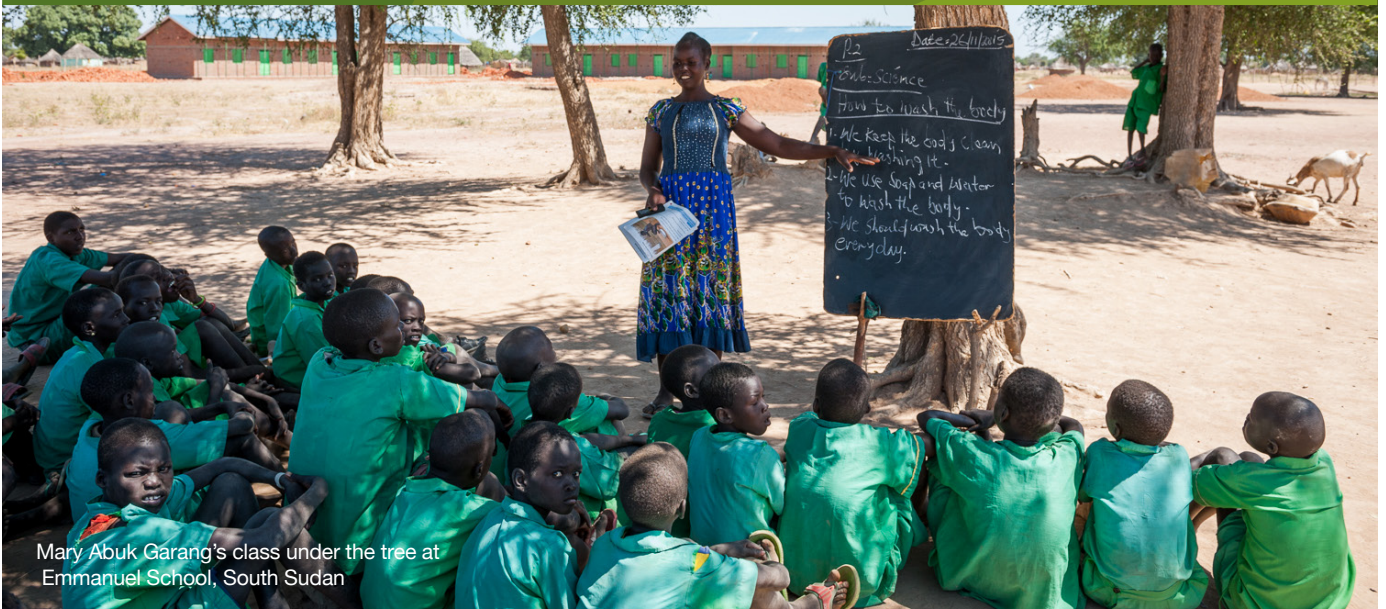 P.2 Date:26/11/2015
Science
How to wash the body
1- We keep the body clean
washing it.
2- We use soap and water
to wash the body.
3- We should wash the body
everyday.
Mary Abuk Garang's class under the tree at
Emmanuel School, South Sudan